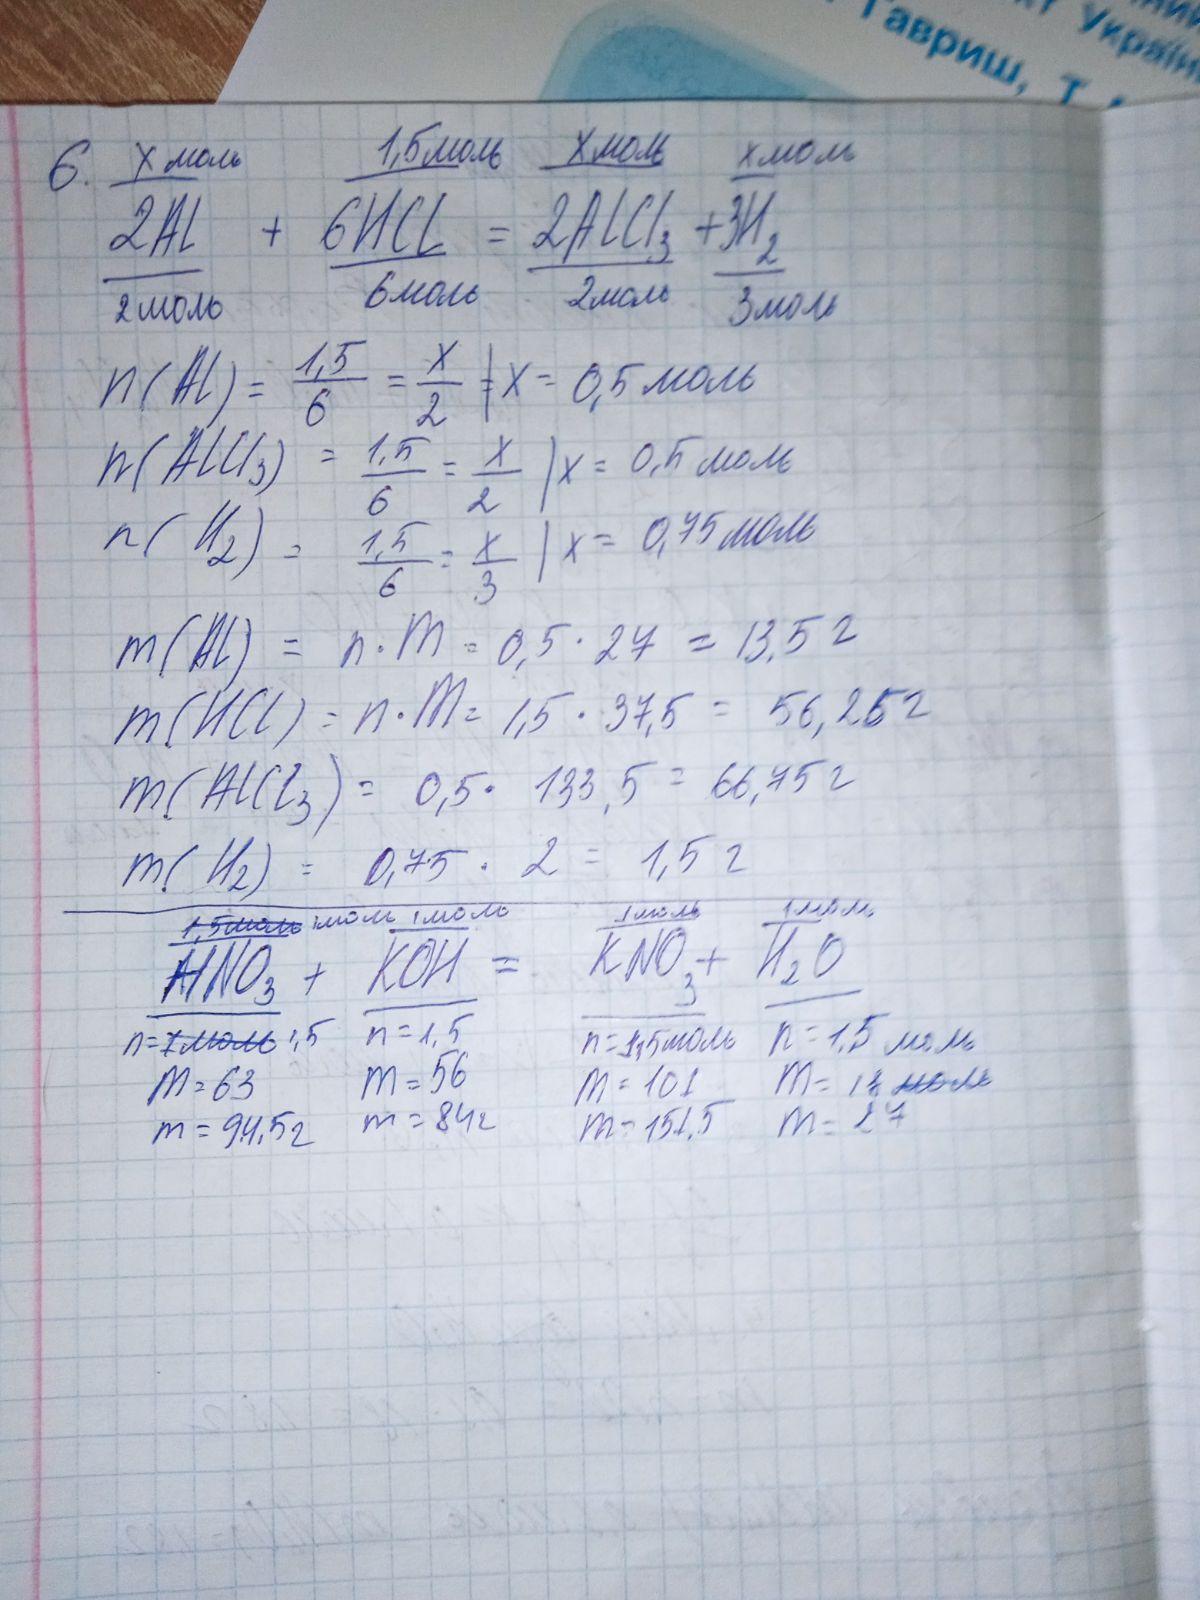 нни
кт Україн
Гавриш, Т.
6. x моль 1,5моль x моль x моль
2Al + 6HCl = 2AlCl3 + 3H2
2моль 6моль 2моль 3моль
n(Al) = 1,5/6 = x/2 | = x = 0,5 моль
n(AlCl3) = 1,5/6 = x/2 | x = 0,5 моль
n(H2) = 1,5/6 = x/3 | x = 0,75 моль
m(Al) = n·M = 0,5·27 = 13,5 г
m(HCl) = n·M = 1,5·37,5 = 56,25 г
m(AlCl3) = 0,5·133,5 = 66,75 г
m(H2) = 0,75·2 = 1,5 г
1,5моль 1моль 1моль 1моль 1моль
HNO3 + KOH = KNO3 + H2O
n=1моль 1,5 n=1,5 n=1,5моль n=1,5 моль
M=63 M=56 M=101 M=18 моль
m=94,5г m=84г m=151,5 m=27